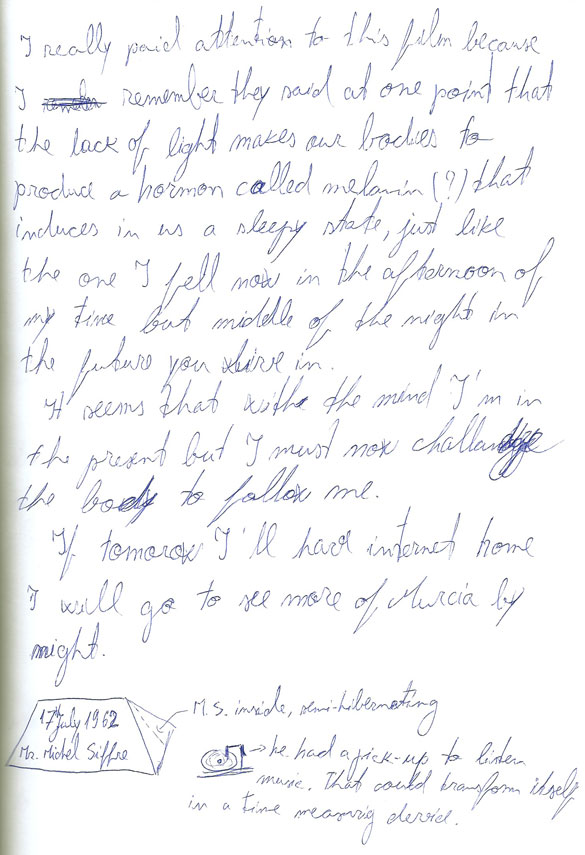 I really paid attention to this film because
I remember they said at one point that
the lack of light makes our bodies to
produce a hormon called melanin (?) that
induces in us a sleepy state, just like
the one I fell now in the afternoon of
my time but middle of the night in
the future you live in.
It seems that with the mind I'm in
the present but I must now challange
the body to follow me.
If tomorow I'll have internet home
I will go to see more of Murcia by
night.
17th July 1962
Mr. Michel Siffre
M.S. inside, semi-hibernating
he had a pick-up to listen
music. That could transform itself
in a time measurig device.